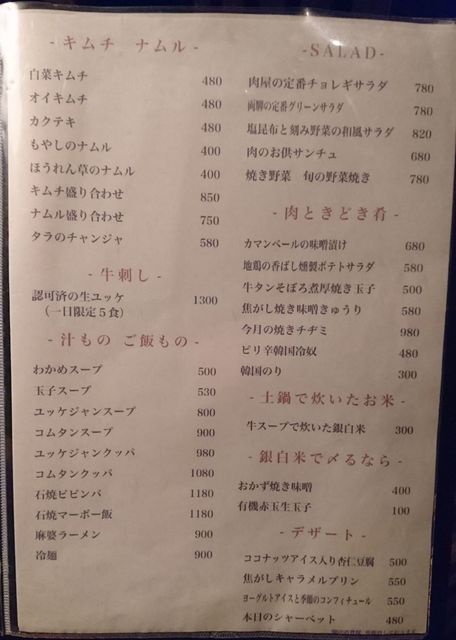 - キムチ ナムル -
白菜キムチ 480
オイキムチ 480
カクテキ 480
もやしのナムル 400
ほうれん草のナムル 400
キムチ盛り合わせ 850
ナムル盛り合わせ 750
タラのチャンジャ 580
- 牛刺し -
認可済の生ユッケ 1300
(一日限定5食)
- 汁もの ご飯もの -
わかめスープ 500
玉子スープ 530
ユッケジャンスープ 800
コムタンスープ 900
ユッケジャンクッパ 980
コムタンクッパ 1080
石焼ビビンパ 1180
石焼マーボー飯 1180
麻婆ラーメン 900
冷麺 900
-SALAD-
肉屋の定番チョレギサラダ 780
定番グリーンサラダ 780
塩昆布と刻み野菜の和風サラダ 820
肉のお供サンチュ 680
焼き野菜 旬の野菜焼き 780
- 肉ときどき肴 -
カマンベールの味噌漬け 680
地鶏の香ばし燻製ポテトサラダ 580
牛タンそぼろ煮厚焼き玉子 500
焦がし焼き味噌きゅうり 580
今月の焼きチヂミ 980
ピリ辛韓国冷奴 480
韓国のり 300
- 土鍋で炊いたお米 -
牛スープで炊いた銀白米 300
- 銀白米で〆るなら -
おかず焼き味噌 400
有機赤玉生玉子 100
- デザート -
ココナッツアイス入り杏仁豆腐 500
焦がしキャラメルプリン 550
ヨーグルトアイスと季節のコンフィチュール 550
本日のシャーベット 480